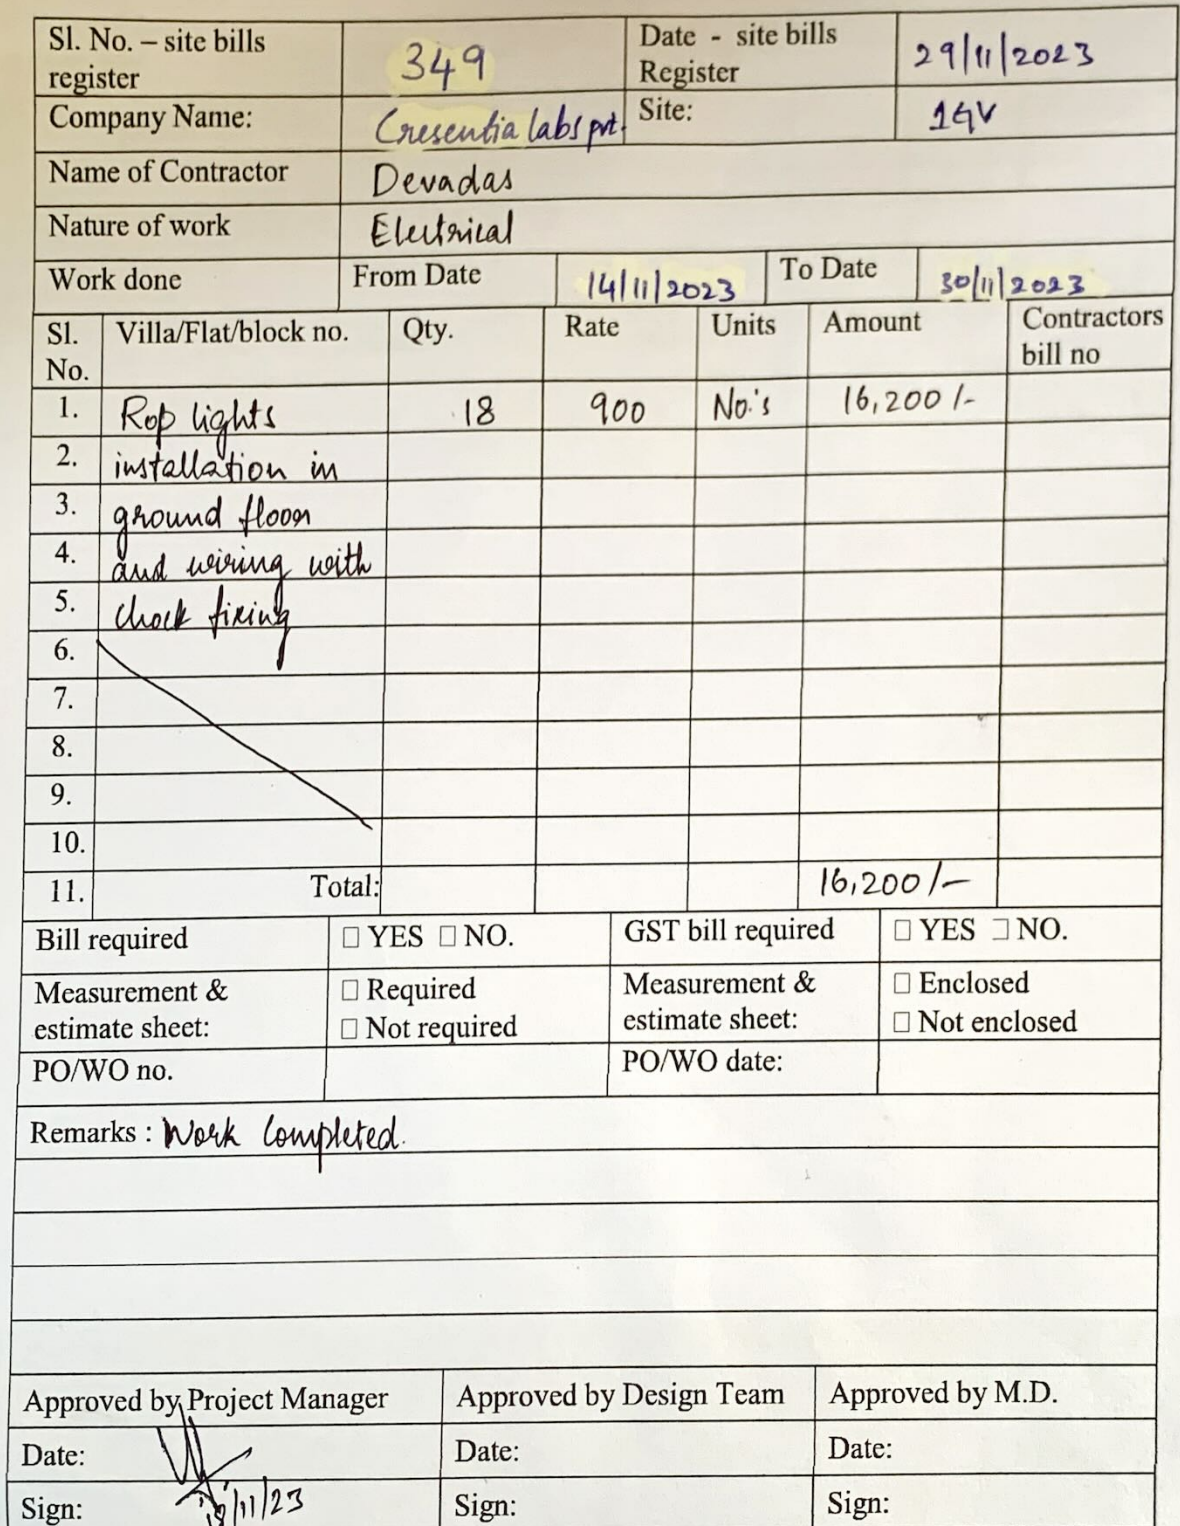 Sl. No. – site bills register 349 Date - site bills Register 29/11/2023
Company Name: Cresentia labs pvt. Site: 1GV
Name of Contractor Devadas
Nature of work Electrical
Work done From Date 14/11/2023 To Date 30/11/2023
Sl. No. Villa/Flat/block no. Qty. Rate Units Amount Contractors bill no
1. Rop lights 18 900 No.'s 16,200/-
2. installation in
3. ground floor
4. and wiring with
5. chock fixing
6.
7.
8.
9.
10.
11. Total: 16,200/-
Bill required □ YES □ NO. GST bill required □ YES □ NO.
Measurement & estimate sheet: □ Required □ Not required Measurement & estimate sheet: □ Enclosed □ Not enclosed
PO/WO no. PO/WO date:
Remarks : Work Completed.
Approved by Project Manager Approved by Design Team Approved by M.D.
Date: Date: Date:
Sign: /11/23 Sign: Sign: